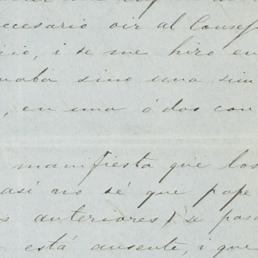 ecesario oir al Conse
icio, i se me hizo en
uaba sino una sim
, en una ó dos con
manifiesta que los
así no sé que pape
s anteriores, a pas
está ausente, i que